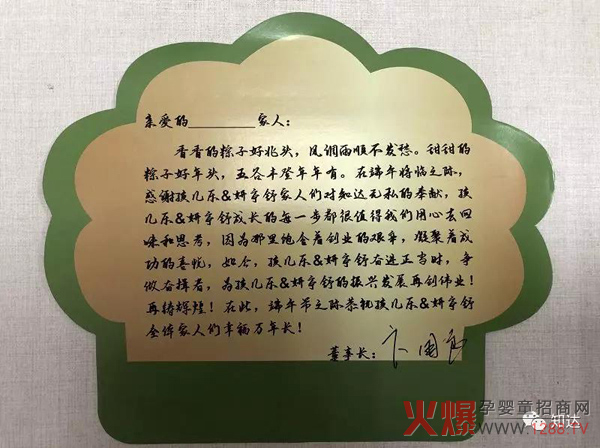 亲爱的________家人：
香香的粽子好兆头，风调雨顺不发愁。甜甜的
粽子好年头，五谷丰登年年有。在端午将临之际，
感谢孩儿乐&妍亭舒家人们对知达无私的奉献，孩
儿乐&妍亭舒成长的每一步都很值得我们用心去回
味和思考，因为那里饱含着创业的艰辛，凝聚着成
功的喜悦，如今，孩儿乐&妍亭舒奋进正当时，争
做奋楫者，为孩儿乐&妍亭舒的振兴发展再创伟业！
再铸辉煌！在此，端午节之际恭祝孩儿乐&妍亭舒
全体家人们幸福万年长！
董事长：
火爆孕婴童招商网
1288.TV
知达